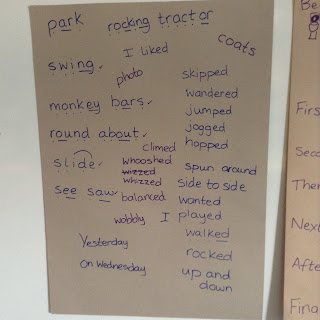 park rocking tractor
coats
I liked
swing
photo
skipped
wandered
monkey bars
jumped
jogged
round about
hopped
climed
slide
whooshed
wizzed
whizzed
spun around
side to side
see saw
balanced
wanted
wobbly I played
walked
Yesterday
rocked
On Wednesday
up and
down
Be
Firs
Seco
Ther
Next
Afte
Fina